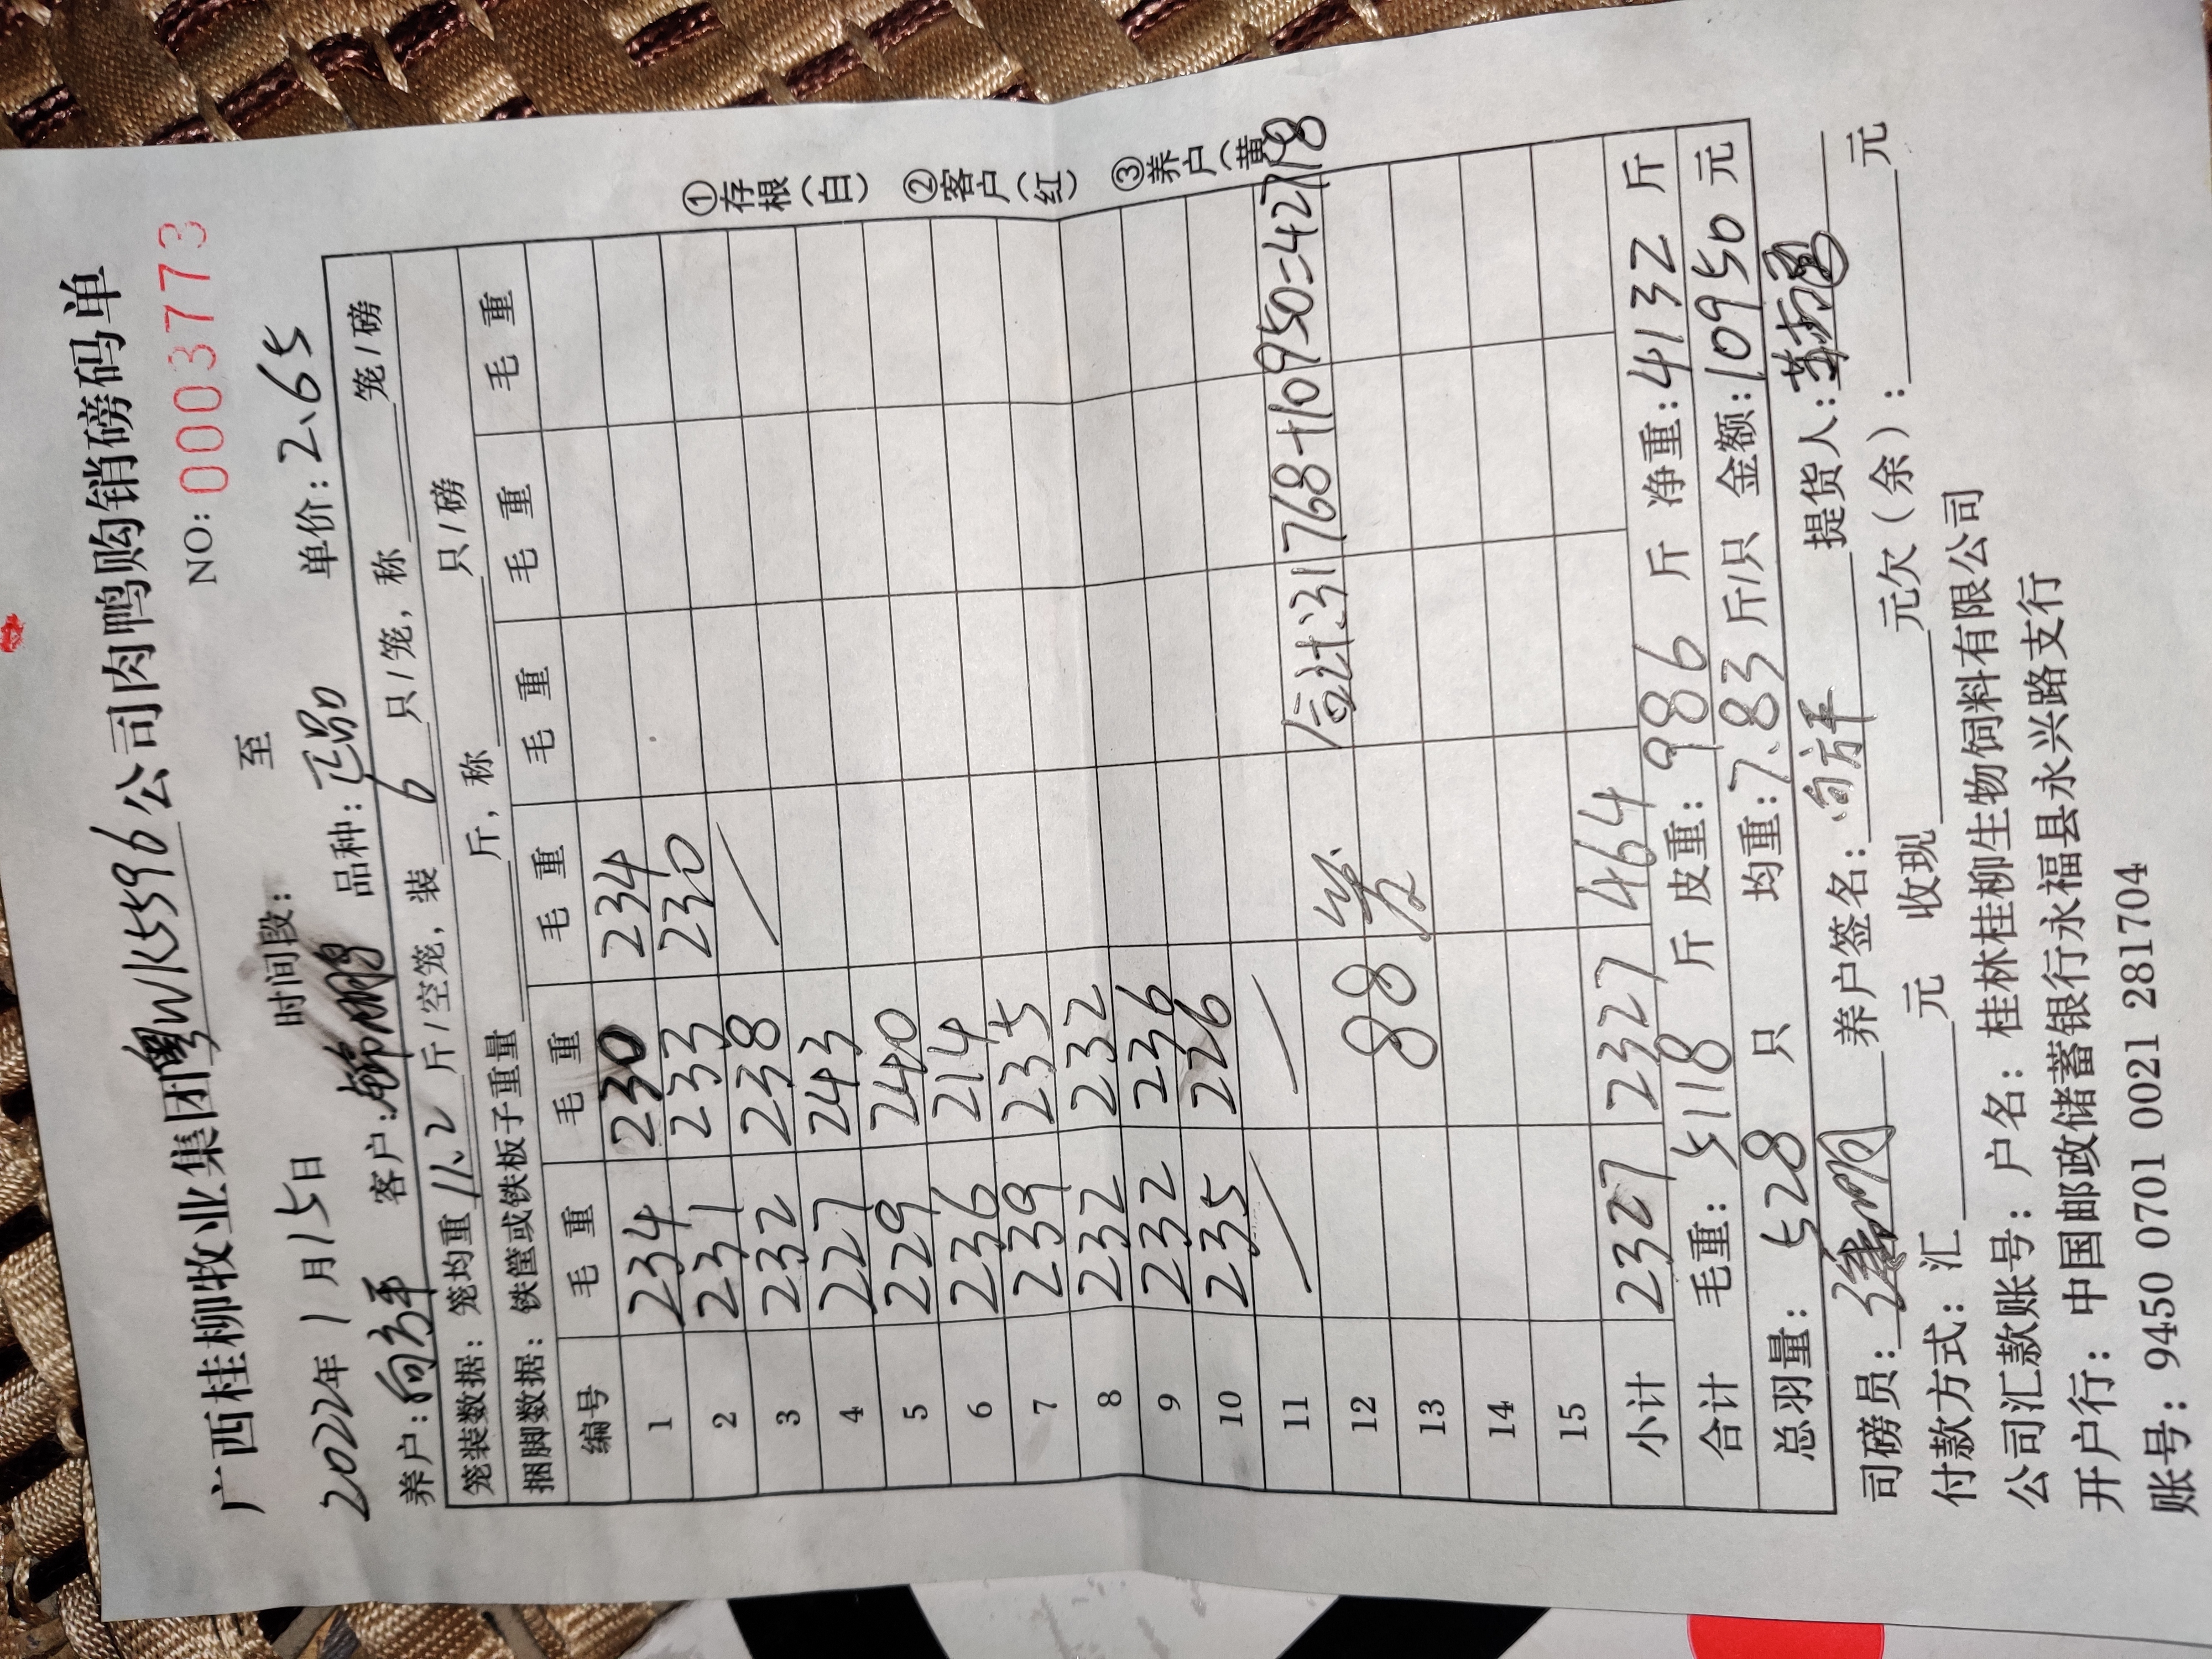 广西桂柳牧业集团粤WK5596公司肉鸭购销磅码单
NO: 0003773
2022年1月15日 时间段: 至
养户: 向方平 客户: 品种: 正品 单价: 2.65
笼装数据: 笼均重 11.2 斤/空笼, 装 6 只/笼, 称 笼/磅
捆脚数据: 铁筐或铁板子重量 斤, 称 只/磅
编号 毛重 毛重 毛重 毛重 毛重 毛重
1 234 230 234
2 231 233 230
3 232 238
4 227 243
5 229 240
6 236 214
7 239 235
8 232 232
9 232 236
10 235 226
11 合计: 31768+10950=42718
12 88 笼
13
14
15
小计 2327 2327 464
合计 毛重: 5118 斤 皮重: 986 斤 净重: 4132 斤
总羽量: 528 只 均重: 7.83 斤/只 金额: 10950 元
司磅员: 养户签名: 向方平 提货人:
付款方式: 汇 元 收现 元欠(余): 元
公司汇款账号: 户名: 桂林桂柳生物饲料有限公司
开户行: 中国邮政储蓄银行永福县永兴路支行
账号: 9450 0701 0021 281704
①存根(白) ②客户(红) ③养户(黄